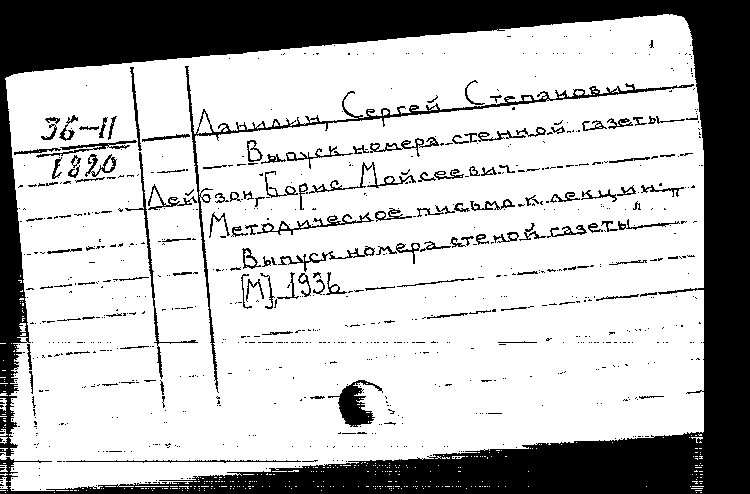 36-11
1820
Данилин, Сергей Степанович
Выпуск номера стенной газеты
Лейбзон, Борис Мойсеевич
Методическое письмо к лекции: „
Выпуск номера стеной газеты"
[М], 1936